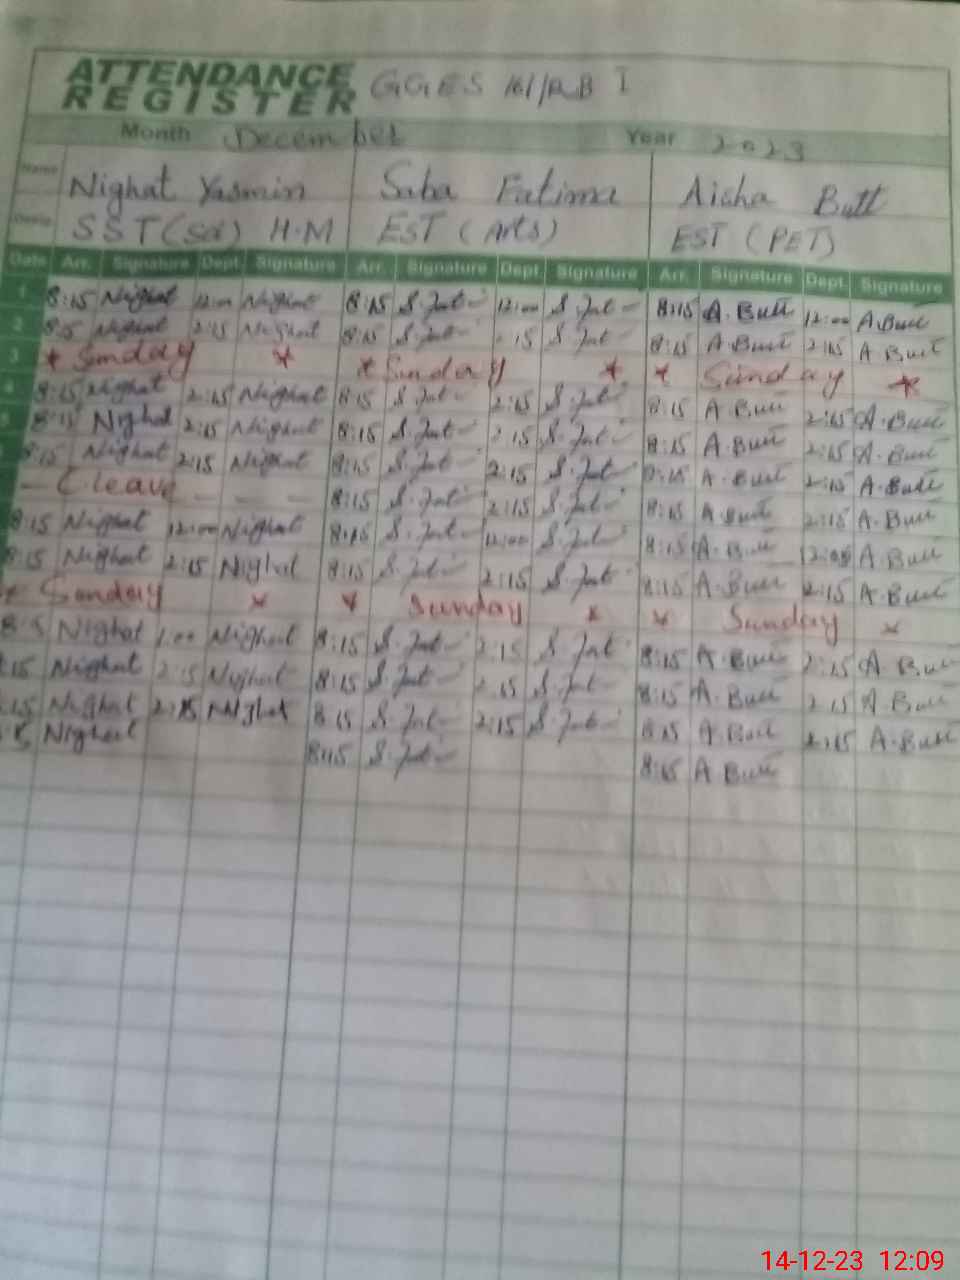 ATTENDANCE REGISTER GGES 161/RB I
Month December Year 2023
Name Nighat Yasmin Saba Fatima Aisha Butt
SST (Sci) H.M EST (Arts) EST (PET)
Date Arr. Signature Dept. Signature Arr. Signature Dept. Signature Arr. Signature Dept. Signature
1 8:15 Nighat 12:00 Nighat 8:15 S.Fat 12:00 S.Fat 8:15 A.Butt 12:00 A.Butt
2 8:15 Nighat 2:15 Nighat 8:15 S.Fat 2:15 S.Fat 8:15 A.Butt 2:15 A Butt
3 * Sunday * * Sunday * * Sunday *
4 8:15 Nighat 2:15 Nighat 8:15 S.Fat 2:15 S.Fat 8:15 A.Butt 2:15 A.Butt
8:15 Nighat 2:15 Nighat 8:15 S.Fat 2:15 S.Fat 8:15 A.Butt 2:15 A.Butt
8:15 Nighat 2:15 Nighat 8:15 S.Fat 2:15 S.Fat 8:15 A.Butt 2:15 A.Butt
C leave 8:15 S.Fat 2:15 S.Fat 8:15 A.Butt 2:15 A.Butt
8:15 Nighat 12:00 Nighat 8:15 S.Fat 12:00 S.Fat 8:15 A.Butt 12:00 A.Butt
8:15 Nighat 2:15 Nighat 8:15 S.Fat 2:15 S.Fat 8:15 A.Butt 2:15 A.Butt
* Sunday * * Sunday * * Sunday *
Nighat 1:00 Nighat 8:15 S.Fat 2:15 S.Fat 8:15 A.Butt 2:15 A.Butt
:15 Nighat 2:15 Nighat 8:15 S.Fat 2:15 S.Fat 8:15 A.Butt 2:15 A.Butt
:15 Nighat 2:15 Nighat 8:15 S.Fat 2:15 S.Fat 8:15 A.Butt 2:15 A.Butt
Nighat 8:15 S.Fat 8:15 A.Butt
14-12-23 12:09